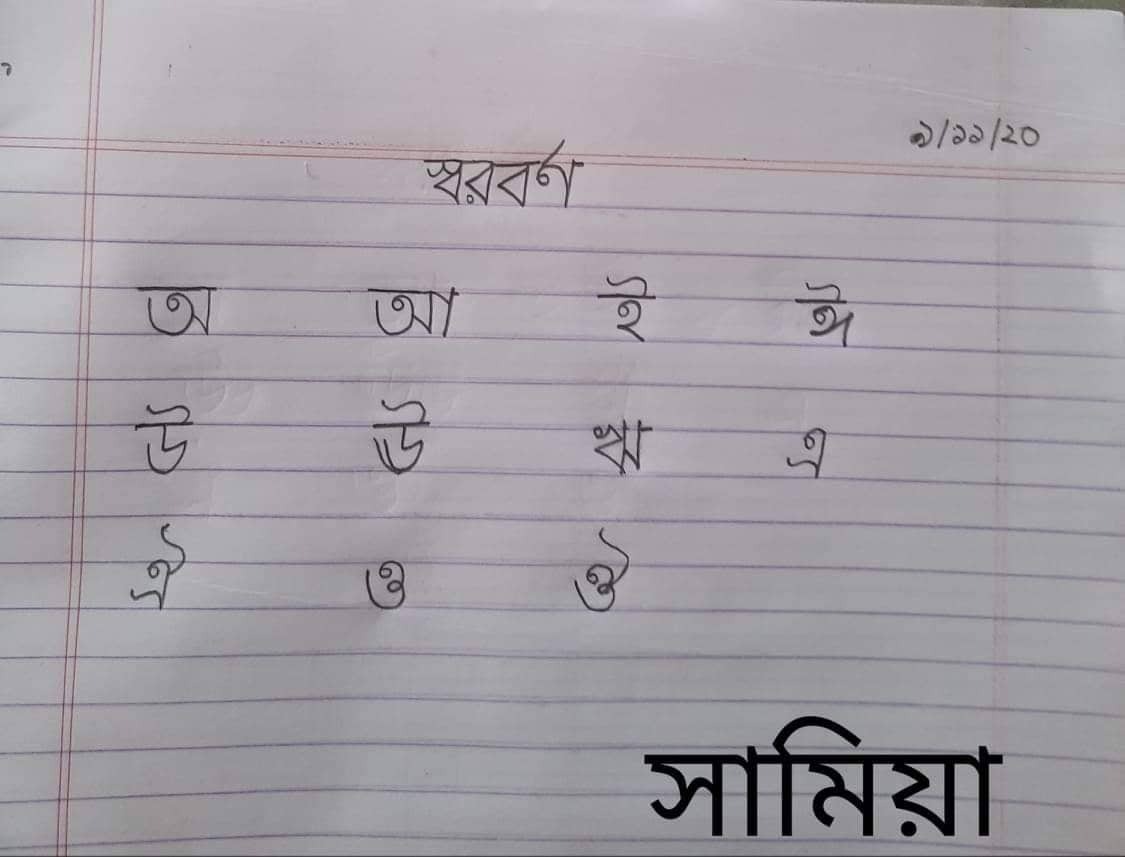 ১/১১/২০
স্বরবর্ণ
অ আ ই ঈ
উ ঊ ঋ এ
ঐ ও ঔ
সামিয়া